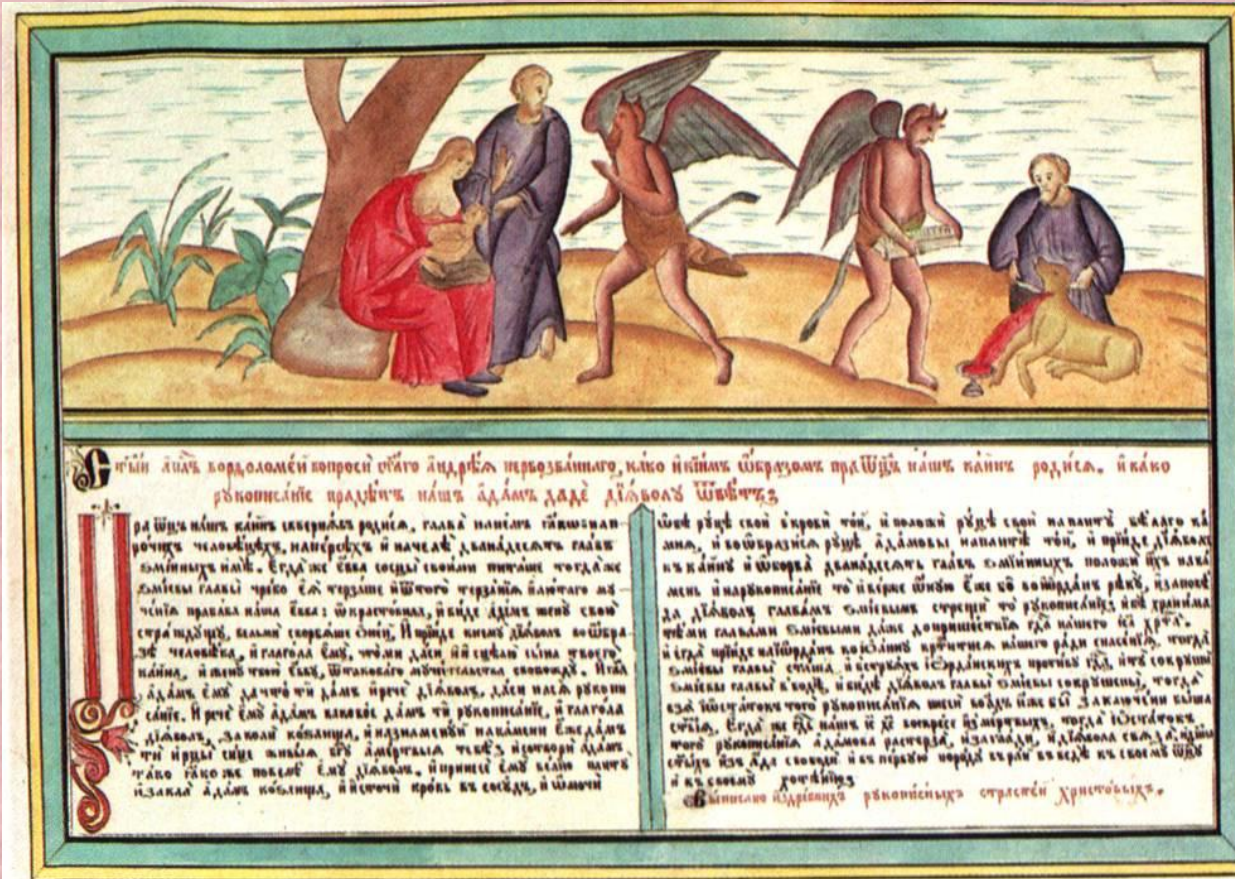 Ст҃ы́и а҆п҃лъ вордоломе́и вопросѝ ст҃а́го а҆ндре́я перво зва́ннаго, ка́ко и҆ кі́имъ ѡ҆́бразомъ пра ѿц҃ъ на́шъ ка́инъ роди́ся. и҆ ка́ко
рукописа́нїе праде́нъ на́шъ а҆да́мъ дадѐ дїа́волу ѿвѣ́тъ
Пра ѿц҃ъ на́шъ ка́инъ скверня́въ роди́ся, глава̀ на не́мъ
человѣ́цѣхъ, на пе́рсѣхъ и҆ на челѣ̀ двана́десять гла́въ
ѕмїи́ныхъ и҆мѣ̀. Е҆гда́ же е҆́вва сосцы̀ свои́ми пита́ше тогда́ же
ѕмїевы главы̀ чре́во е҆я̀ терза́ше и҆ ѿ того̀ терза́нїя и҆ лю́таго му
че́нїя прабаба на́ша е҆́вва: и҆ ви́де а҆да́мъ жену̀ свою̀
стра́ждущу, вельмѝ скорбя́ше о҆ не́й, И҆ прїи́де к нему̀ дїа́волъ во ѡ҆бра
зѣ̀ человѣ́ка, и҆ глаго́ла е҆му̀, да́си и҆ а҆́зъ и҆сцелю̀ сы́на твоего̀
ка́ина, и҆ жену̀ твою̀ е҆́вву, ѿ такова́го мучи́тельства свобожду̀. И҆ гл҃а
а҆да́мъ е҆му̀ да что̀ ти да́мъ и҆ речѐ дїа́волъ, да́си на ся̀ рукопи
са́нїе. И҆ речѐ е҆му̀ а҆да́мъ каково́е да́мъ ти рукописа́нїе, и҆ глаго́ла
дїа́волъ, заколѝ козлища, и҆ назна́менуй на ка́мени е҆же да́мъ
ти и҆ рцы̀ си́це жи́выя бг҃у а҆ ме́ртвыя тебѣ̀ и҆ сотворѝ а҆да́мъ
та́ко я҆́ко же повелѣ̀ е҆му̀ дїа́волъ. и҆ принесѐ е҆му̀ бѣ́лую плиту̀
и҆ закла̀ а҆да́мъ козлища, и҆ и҆сточѝ кро́вь въ сосу́дъ, и҆ ѡ҆мочѝ
ѻ҆́бѣ ру́цѣ своѝ в кровѝ то́й, и҆ положѝ ру́цѣ своѝ на плиту̀ бѣ́лаго ка
мня, и҆ воѡбрази́ся ру́цѣ а҆да́мовы на плитѣ̀ то́й, и҆ прїи́де дїа́волъ
къ ка́ину и҆ ѡ҆борва̀ двана́десять гла́въ ѕмїи́нныхъ положѝ и҆́хъ на ка
мень и҆ на рукописа́нїе то̀ и҆ ве́рже во и҆ѻрда́нъ рѣку̀, и҆ заповѣ́
да дїа́волъ глава́мъ ѕмїевымъ стрещѝ то̀ рукописа́нїе и҆ бѣ̀ храни́ма
тѣ́ми глава́ми ѕмїевыми да́же до прише́ствїя гд҃а на́шего і҆с҃а хр҃та̀.
и҆ е҆гда̀ прїи́де на і҆ѻрда́нъ ко и҆ѡа́нну крти́тися на́шего ра́ди спасе́нїя, тогда̀
ѕмїевы главы̀ ста́ша, в струя́хъ і҆ѻрда́нскихъ проти́ву гд҃а, и҆ ту̀ сокрушѝ
ѕмїевы главы̀ в водѣ̀, и҆ ви́дѣ дїа́волъ главы̀ ѕмїевы сокруше́ны, тогда̀
взя̀ ѡ҆ста́токъ того̀ рукописа́нїя и҆ внесе́ во а҆́дъ и҆дѣ́же бы заключе́ни бы́ша
ст҃їя, Е҆гда́ же гд҃ь на́шъ і҆с҃ х҃с воскресѐ и҆з ме́ртвыхъ, тогда̀ ѡ҆ста́токъ
того̀ рукописа́нїя а҆да́мова растерза̀, и҆ загла́ди, и҆ дїа́вола связа̀
ст҃ыхъ и҆з а҆́да свободѝ и҆ въ пе́рвую поро́ду введѐ къ своему̀ ѻ҆ц҃у̀
и҆ къ своему̀ хотѣ́нїю
Вы́писано и҆з дре́внихъ рукопи́сныхъ страсте́й христо́выхъ.